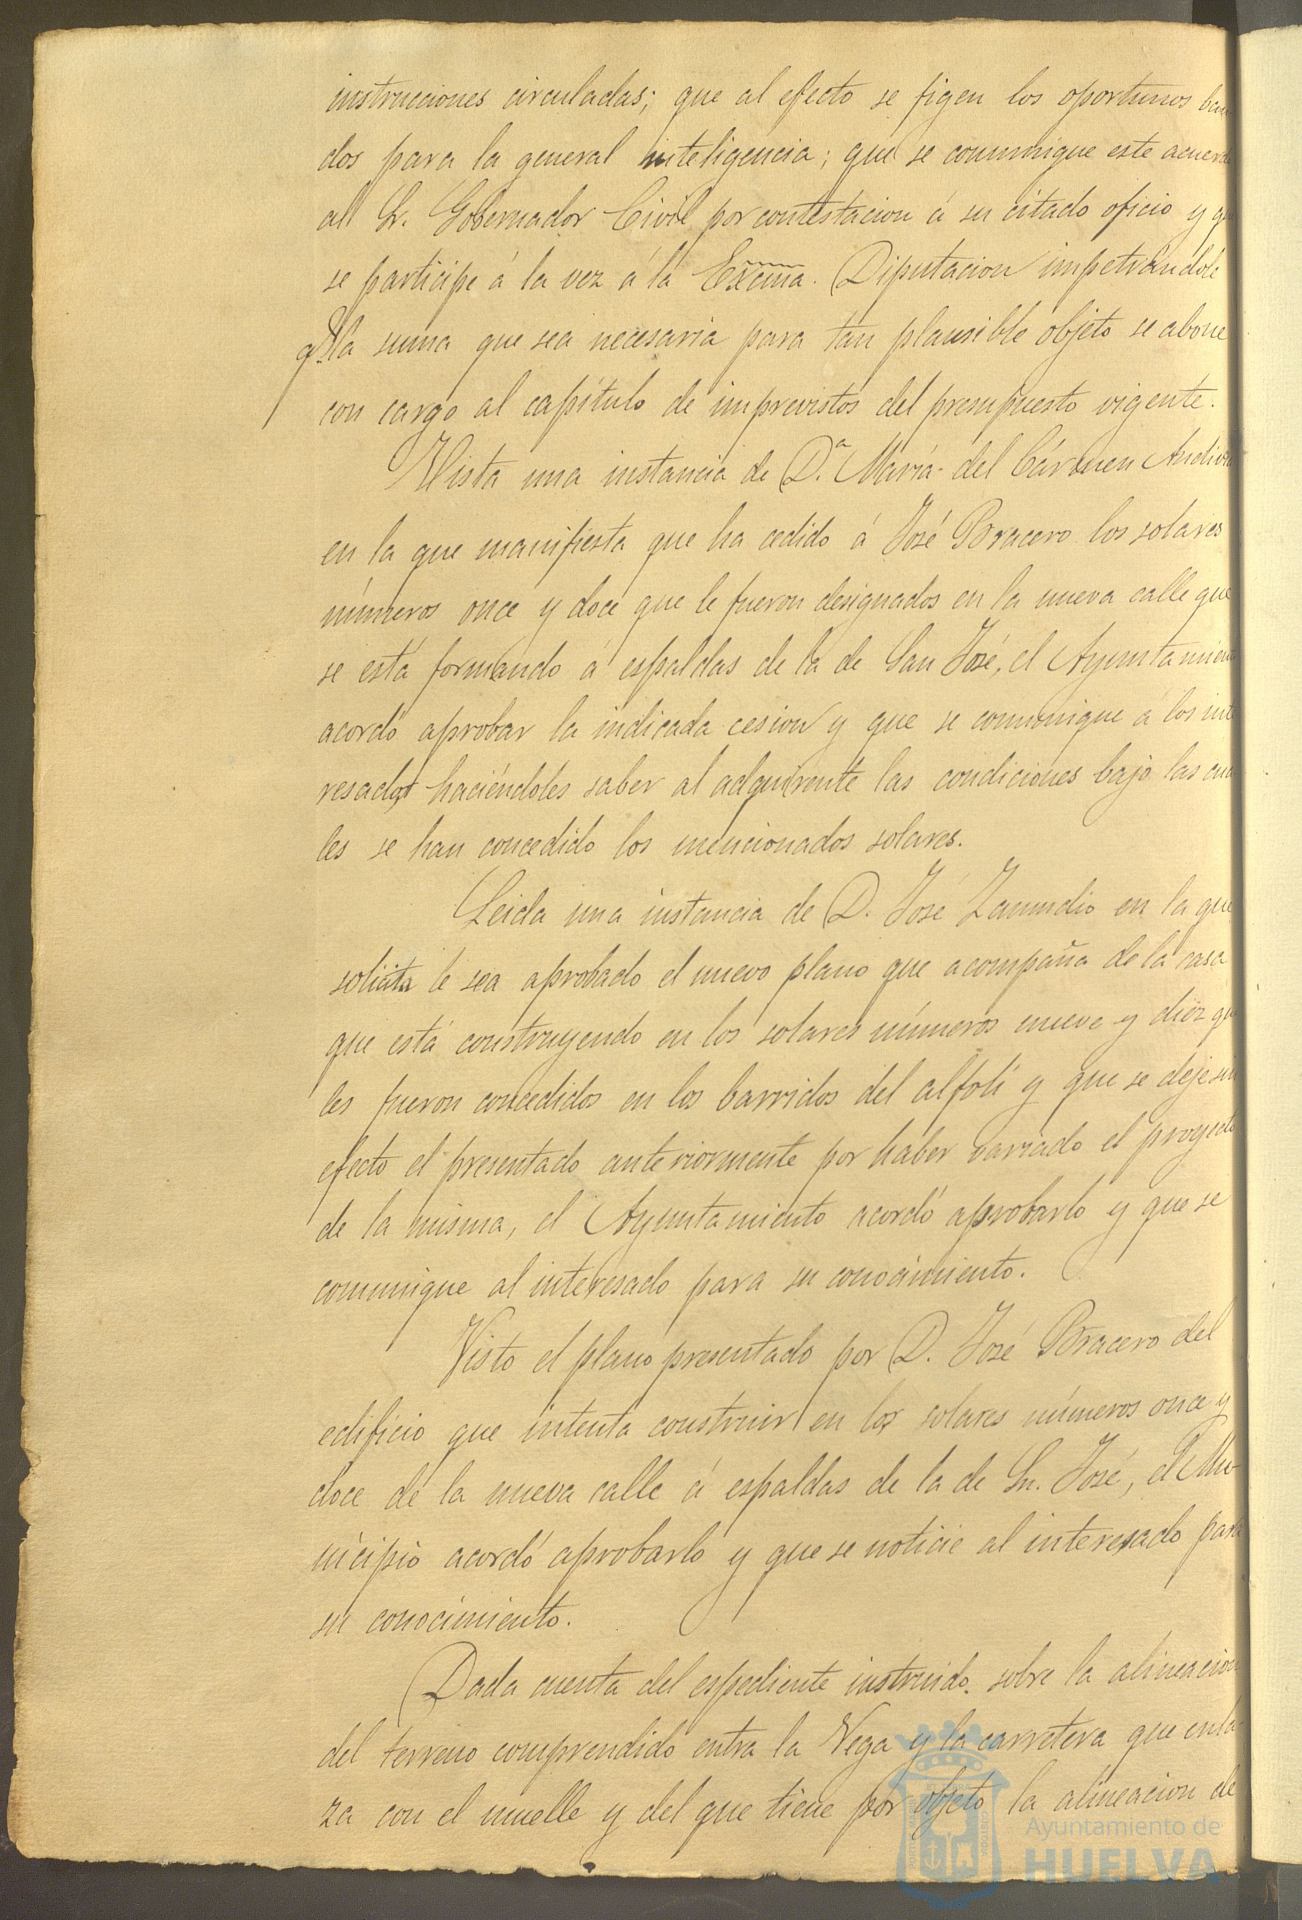 instrucciones circuladas; que al efecto se figen los oportunos ban
dos para la general inteligencia; que se comunique este acuerdo
al Sr. Gobernador Civil por contestacion á su citado oficio y que
se participe á la vez á la Excma. Diputacion impetrándole
q.e la suma que sea necesaria para tan plausible objeto se abone
con cargo al capítulo de imprevistos del presupuesto vigente.
Vista una instancia de D.ª María del Cármen
en la que manifiesta que ha cedido á José Bracero los solares
números once y doce que le fueron designados en la nueva calle que
se está formando á espaldas de la de San José, el Ayuntamiento
acordó aprobar la indicada cesion y que se comunique á los inte
resados haciéndoles saber al adquirente las condiciones bajo las cua
les se han concedido los mencionados solares.
Leida una instancia de D. José Zamudio en la que
solicita le sea aprobado el nuevo plano que acompaña de la casa
que está construyendo en los solares números nueve y diez que
les fueron concedidos en los barridos del alfolí y que se deje sin
efecto el presentado anteriormente por haber variado el proyecto
de la misma, el Ayuntamiento acordó aprobarlo y que se
comunique al interesado para su conocimiento.
Visto el plano presentado por D. José Bracero del
edificio que intenta construir en los solares números once y
doce de la nueva calle á espaldas de la de Sn. José, el Mu-
nicipio acordó aprobarlo y que se noticie al interesado para
su conocimiento.
Dada cuenta del espediente instruido sobre la alineacion
del terreno comprendido entra la Vega y la carretera que enla
za con el muelle y del que tiene por objeto la alineacion de
Ayuntamiento de
HUELVA